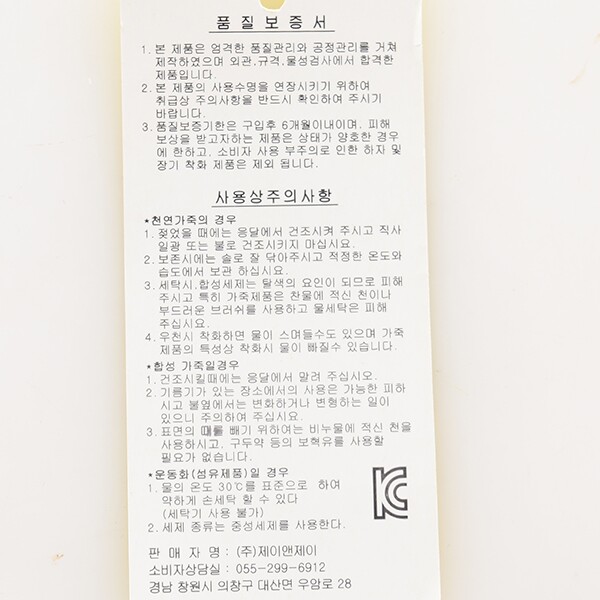 품질보증서
1. 본 제품은 엄격한 품질관리와 공정관리를 거쳐
제작하였으며 외관,규격,물성검사에서 합격한
제품입니다.
2. 본 제품의 사용수명을 연장시키기 위하여
취급상 주의사항을 반드시 확인하여 주시기
바랍니다.
3. 품질보증기한은 구입후 6개월이내이며, 피해
보상을 받고자하는 제품은 상태가 양호한 경우
에 한하고, 소비자 사용 부주의로 인한 하자 및
장기 착화 제품은 제외 됩니다.
사용상주의사항
*천연가죽의 경우
1. 젖었을 때에는 응달에서 건조시켜 주시고 직사
일광 또는 불로 건조시키지 마십시요.
2. 보존시에는 솔로 잘 닦아주시고 적정한 온도와
습도에서 보관 하십시요.
3. 세탁시,합성세제는 탈색의 요인이 되므로 피해
주시고 특히 가죽제품은 찬물에 적신 천이나
부드러운 브러쉬를 사용하고 물세탁은 피해
주십시요.
4. 우천시 착화하면 물이 스며들수도 있으며 가죽
제품의 특성상 착화시 물이 빠질수 있습니다.
*합성 가죽일경우
1. 건조시킬때에는 응달에서 말려 주십시오.
2. 기름기가 있는 장소에서의 사용은 가능한 피하
시고 불옆에서는 변화하거나 변형하는 일이
있으니 주의하여 주십시요.
3. 표면의 때를 빼기 위하여는 비눗물에 적신 천을
사용하시고, 구두약 등의 보혁유를 사용할
필요가 없습니다.
*운동화(섬유제품)일 경우
1. 물의 온도 30℃를 표준으로 하여
약하게 손세탁 할 수 있다
(세탁기 사용 불가)
2. 세제 종류는 중성세제를 사용한다.
판 매 자 명 : (주)제이앤제이
소비자상담실 : 055-299-6912
경남 창원시 의창구 대산면 우암로 28